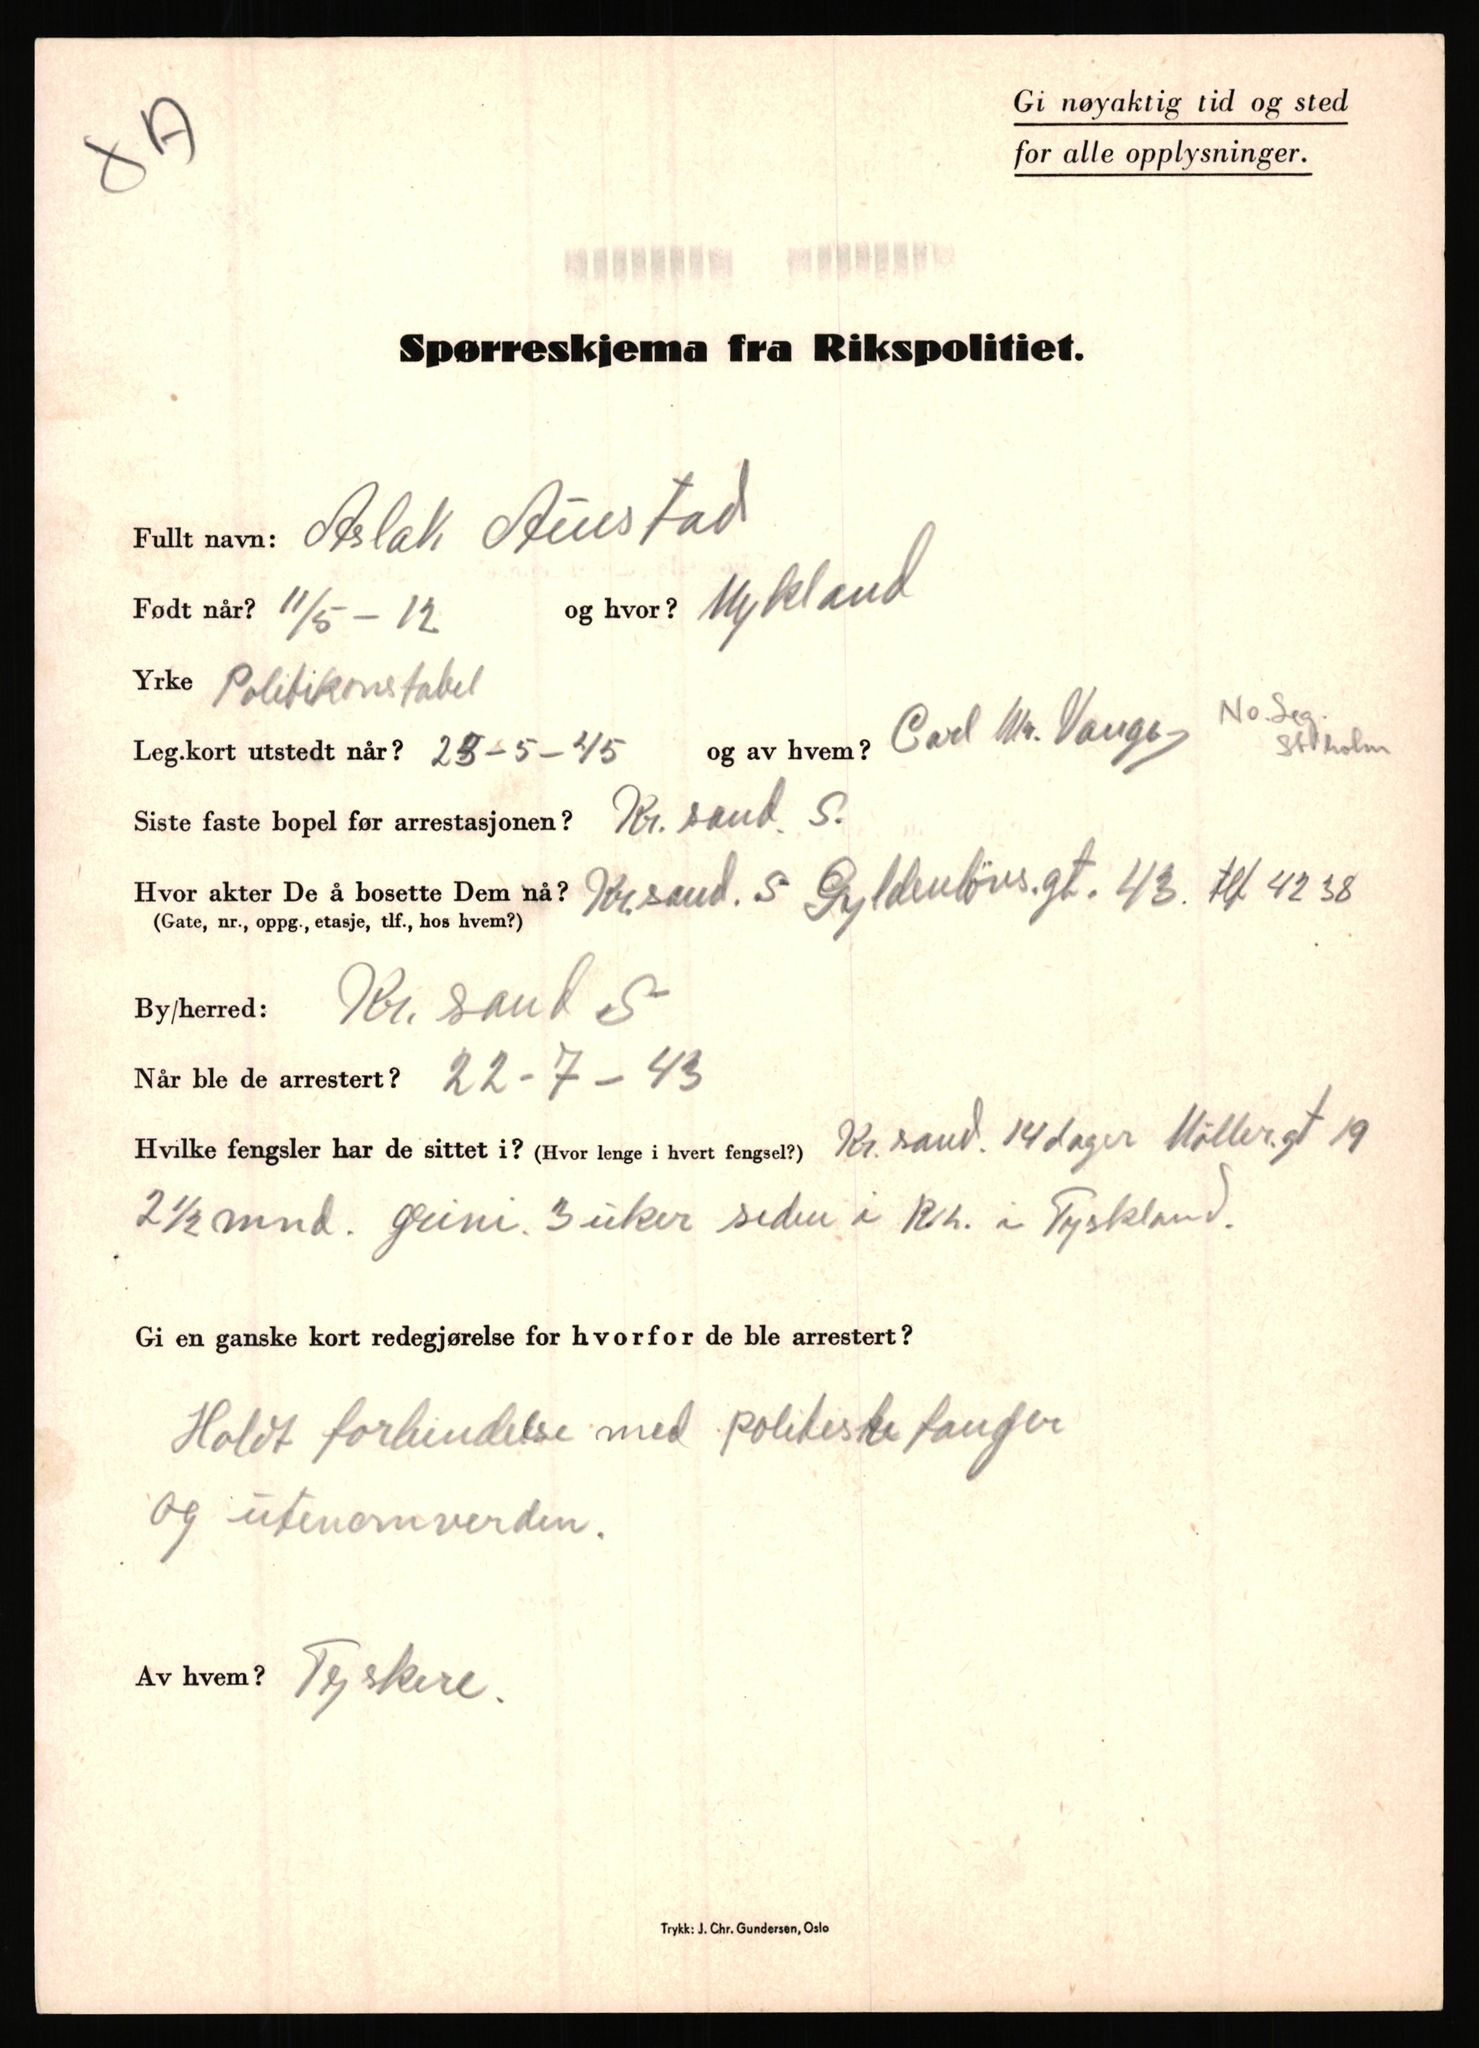 Gi nøyaktig tid og sted
for alle opplysninger.
Spørreskjema fra Rikspolitiet.
Fullt navn: Aslak Austad
Født når? 11/5 – 12 og hvor? Mykland
Yrke Politikonstabel
Leg.kort utstedt når? 25-5-45 og av hvem? Carl Mr. No. Leg. St.holm
Siste faste bopel før arrestasjonen? Kr. sand. S.
Hvor akter De å bosette Dem nå? Kr.sand. S Gyldenlövs.gt. 43. tlf 42 38
(Gate, nr., oppg., etasje, tlf., hos hvem?)
By/herred: Kr. sand S
Når ble de arrestert? 22-7-43
Hvilke fengsler har de sittet i? (Hvor lenge i hvert fengsel?) Kr. sand. 14 dager Möller.gt 19
2 1/2 mnd. Grini. 3 uker siden i i Tyskland.
Gi en ganske kort redegjørelse for hvorfor de ble arrestert?
Holdt forbindelse med politiske fanger
og utenomverden.
Av hvem? Tyskere.
Trykk: J. Chr. Gundersen, Oslo